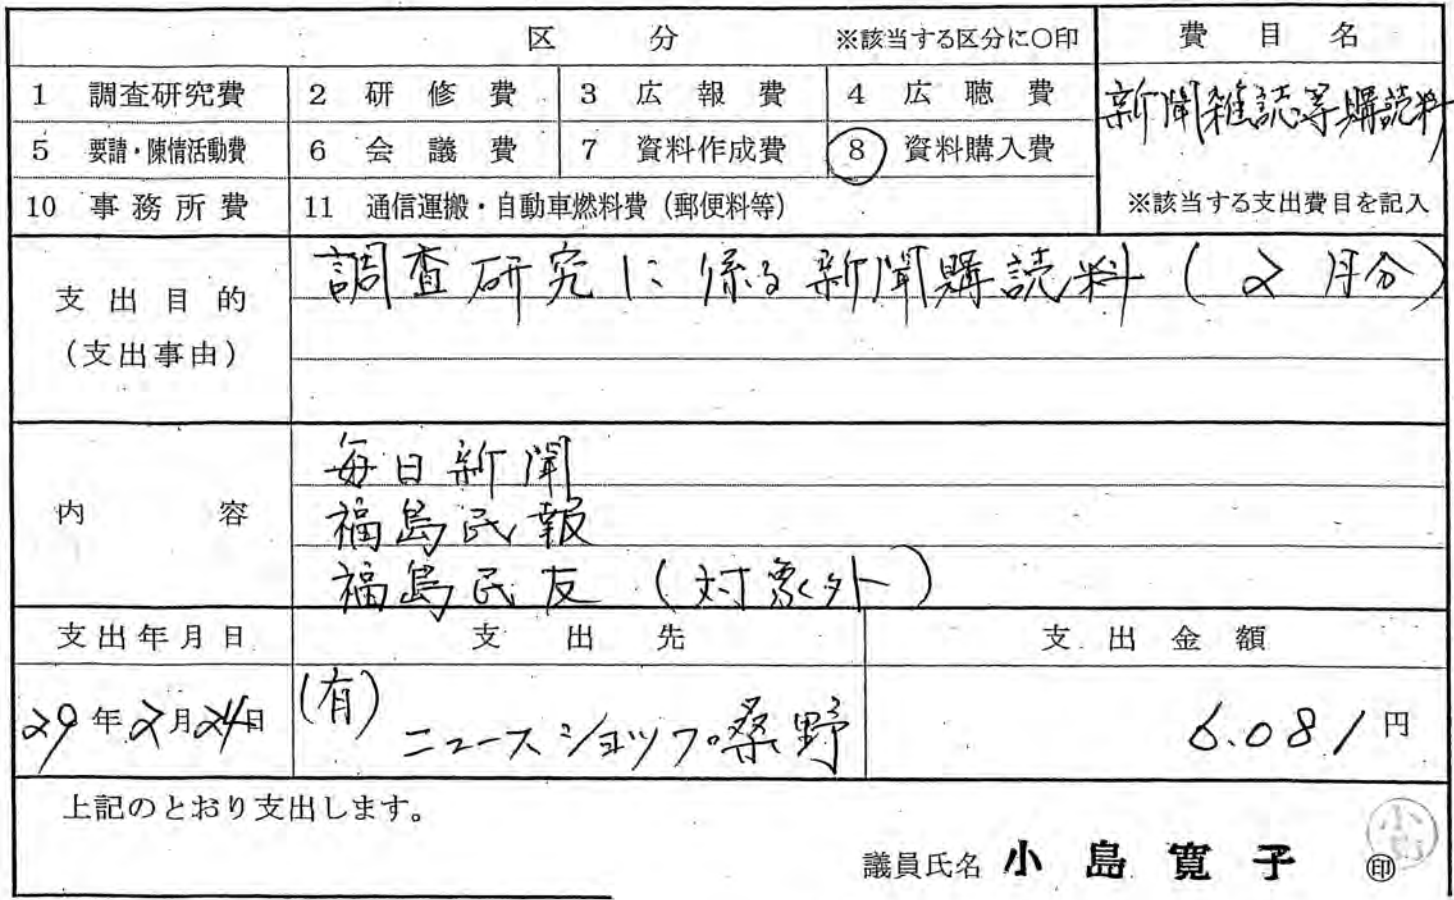 区 分 ※該当する区分に○印 費目名
1 調査研究費 2 研修費 3 広報費 4 広聴費 新聞雑誌等購読料
5 要請・陳情活動費 6 会議費 7 資料作成費 8 資料購入費
10 事務所費 11 通信運搬・自動車燃料費(郵便料等) ※該当する支出費目を記入
支出目的 調査研究に係る新聞購読料(2月分)
(支出事由)
毎日新聞
内容 福島民報
福島民友(対象外)
支出年月日 支出先 支出金額
29年2月24日 (有)ニュースショップ桑野 6.081円
上記のとおり支出します。
議員氏名 小島寛子 ㊞